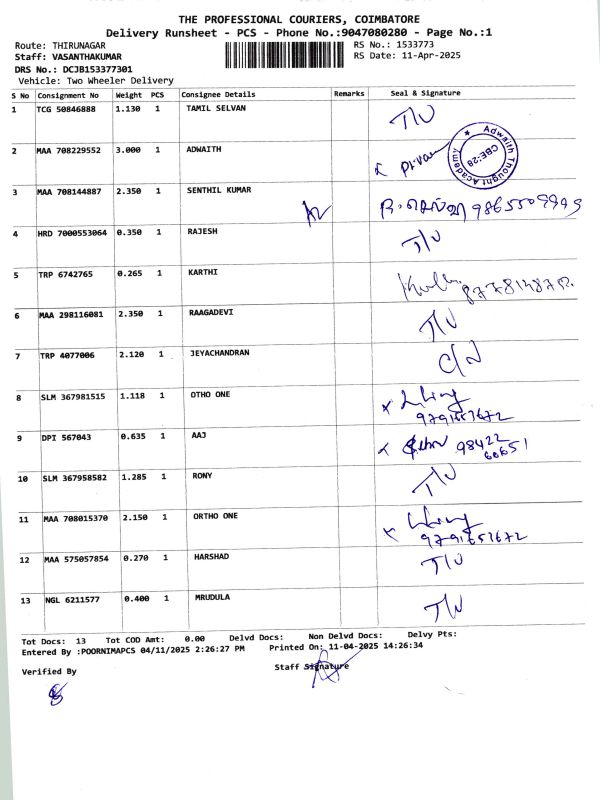 THE PROFESSIONAL COURIERS, COIMBATORE
Delivery Runsheet - PCS - Phone No.:9047080280 - Page No.:1
Route: THIRUNAGAR RS No.: 1533773
Staff: VASANTHAKUMAR RS Date: 11-Apr-2025
DRS No.: DCJB153377301
Vehicle: Two Wheeler Delivery
S No Consignment No Weight PCS Consignee Details Remarks Seal & Signature
1 TCG 50846888 1.130 1 TAMIL SELVAN T/U
2 MAA 708229552 3.000 1 ADWAITH
Adwaith Thought Academy
CBE-28
3 MAA 708144887 2.350 1 SENTHIL KUMAR
4 HRD 7000553064 0.350 1 RAJESH T/U
5 TRP 6742765 0.265 1 KARTHI
6 MAA 298116081 2.350 1 RAAGADEVI T/U
7 TRP 4077006 2.120 1 JEYACHANDRAN C/N
8 SLM 367981515 1.118 1 OTHO ONE
9791653672
9 DPI 567043 0.635 1 AAJ 98422
60651
10 SLM 367958582 1.285 1 RONY T/U
11 MAA 708015370 2.150 1 ORTHO ONE
9791653672
12 MAA 575057854 0.270 1 HARSHAD T/U
13 NGL 6211577 0.400 1 MRUDULA T/U
Tot Docs: 13 Tot COD Amt: 0.00 Delvd Docs: Non Delvd Docs: Delvy Pts:
Entered By :POORNIMAPCS 04/11/2025 2:26:27 PM Printed On: 11-04-2025 14:26:34
Verified By Staff Signature